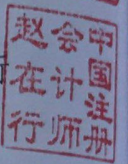 中国注册
会计师
赵在行